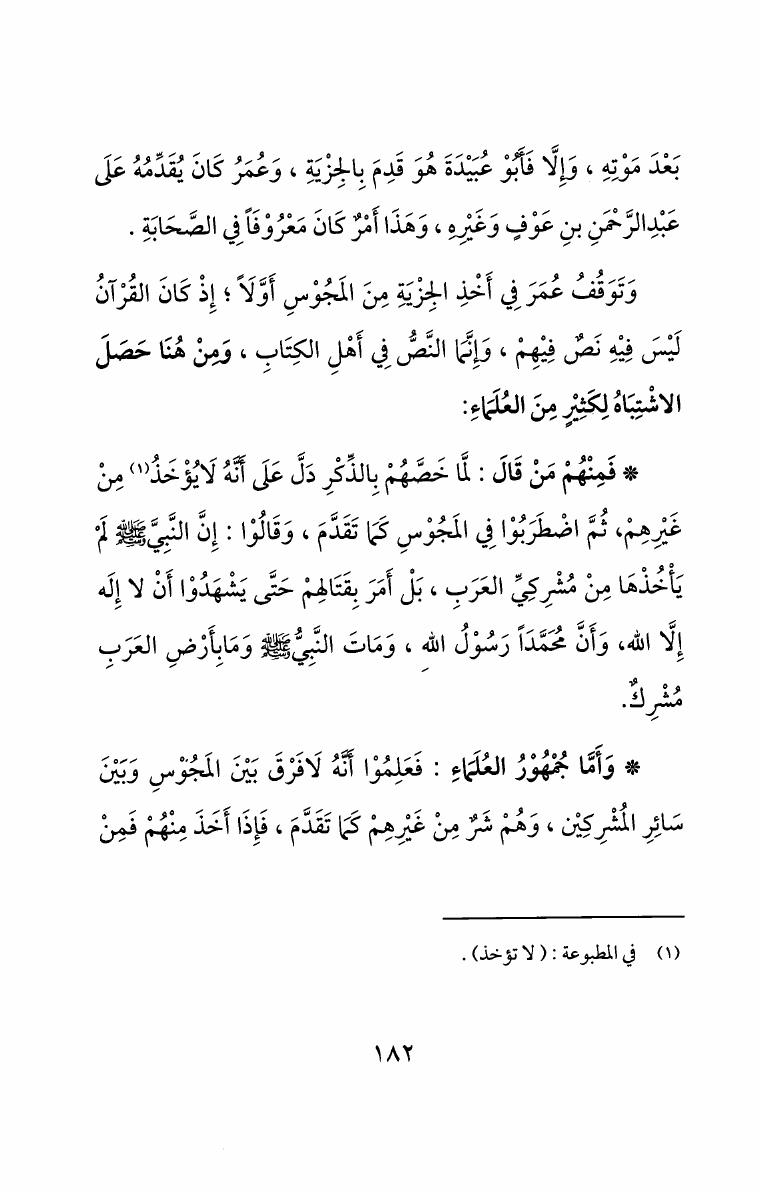 بَعْدَ مَوْتِهِ ، وَإِلَّا فَأَبُوْ عُبَيْدَةَ هُوَ قَدِمَ بِالجِزْيَةِ ، وَعُمَرُ كَانَ يُقَدِّمُهُ عَلَى
عَبْدِالرَّحْمَنِ بنِ عَوْفٍ وَغَيْرِهِ ، وَهَذَا أَمْرٌ كَانَ مَعْرُوْفَاً فِي الصَّحَابَةِ .
وَتَوَقُّفُ عُمَرَ فِي أَخْذِ الجِزْيَةِ مِنَ المَجُوْسِ أَوَّلَاً ؛ إِذْ كَانَ القُرْآنُ
لَيْسَ فِيْهِ نَصٌ فِيْهِمْ ، وَإِنَّمَا النَّصُّ فِي أَهْلِ الكِتَابِ ، وَمِنْ هُنَا حَصَلَ
الاشْتِبَاهُ لِكَثِيْرٍ مِنَ العُلَمَاءِ:
* فَمِنْهُمْ مَنْ قَالَ : لَمَّا خَصَّهُمْ بِالذِّكْرِ دَلَّ عَلَى أَنَّهُ لَايُؤْخَذُ(١) مِنْ
غَيْرِهِمْ، ثُمَّ اضْطَرَبُوْا فِي المَجُوْسِ كَمَا تَقَدَّمَ ، وَقَالُوْا : إِنَّ النَّبِيَّ ﷺ لَمْ
يَأْخُذْهَا مِنْ مُشْرِكِيِّ العَرَبِ ، بَلْ أَمَرَ بِقَتَالِهِمْ حَتَّى يَشْهَدُوْا أَنْ لا إِلَه
إِلَّا الله، وَأَنَّ مُحَمَّدَاً رَسُوْلُ اللهِ ، وَمَاتَ النَّبِيُّ ﷺ وَمَابِأَرْضِ العَرَبِ
مُشْرِكٌ.
* وَأَمَّا جُمْهُوْرُ العُلَمَاءِ : فَعَلِمُوْا أَنَّهُ لَافَرْقَ بَيْنَ المَجُوْسِ وَبَيْنَ
سَائِرِ المُشْرِكِيْن ، وَهُمْ شَرٌ مِنْ غَيْرِهِمْ كَمَا تَقَدَّمَ ، فَإِذَا أَخَذَ مِنْهُمْ فَمِنْ
(١) في المطبوعة : ( لا تؤخذ) .
١٨٢